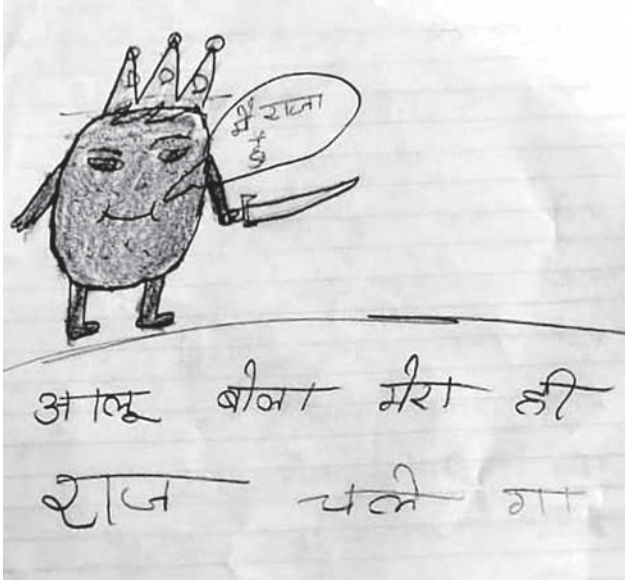 मैं राजा
हूं
आलू बोला मेरा ही
राज चले गा